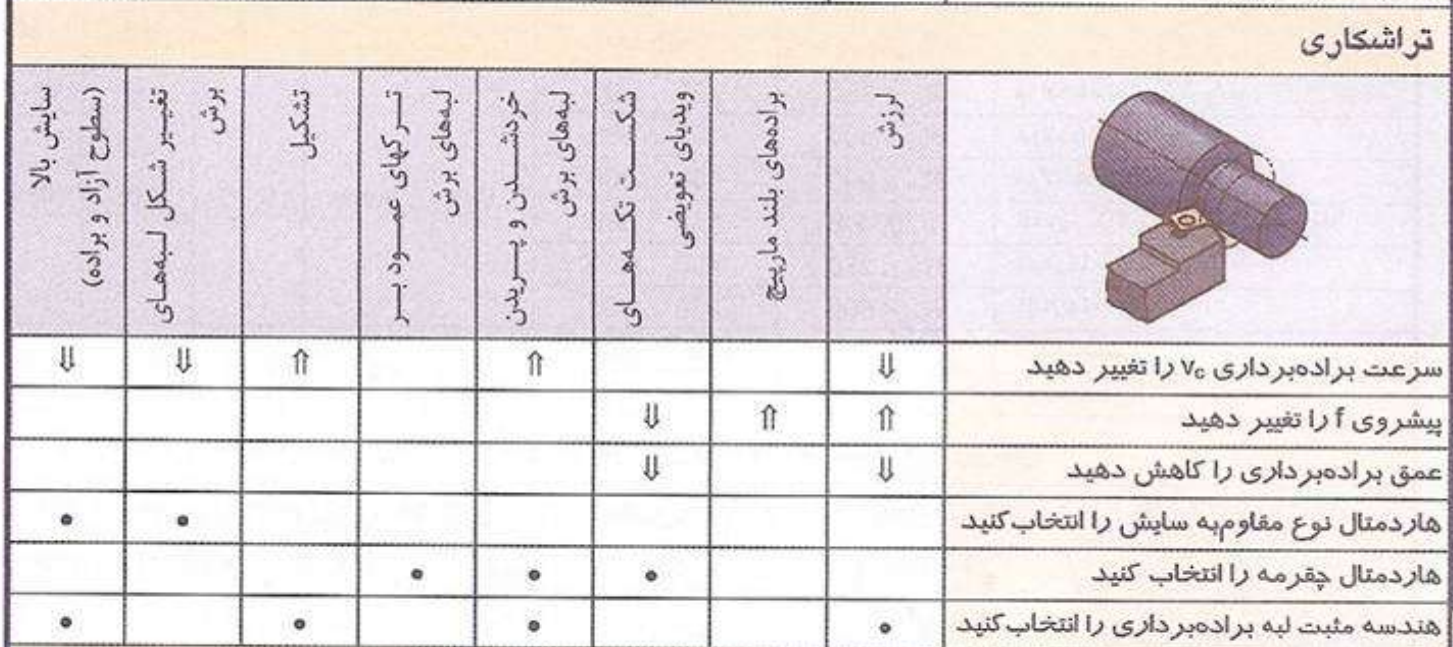 تراشکاری
لرزش
براده‌های بلند مارپیچ
شکست تکه‌های
ویدیای تعویضی
خردشدن و پریدن
لبه‌های برش
ترکهای عمود بر
لبه‌های برش
تشکیل
تغییر شکل لبه‌های
برش
سایش بالا
(سطوح آزاد و براده)
سرعت براده‌برداری vc را تغییر دهید ⇓ ⇑ ⇑ ⇓ ⇓
پیشروی f را تغییر دهید ⇑ ⇑ ⇓
عمق براده‌برداری را کاهش دهید ⇓ ⇓
هاردمتال نوع مقاوم‌به سایش را انتخاب‌کنید • •
هاردمتال چقرمه را انتخاب کنید • • •
هندسه مثبت لبه براده‌برداری را انتخاب‌کنید • • • •